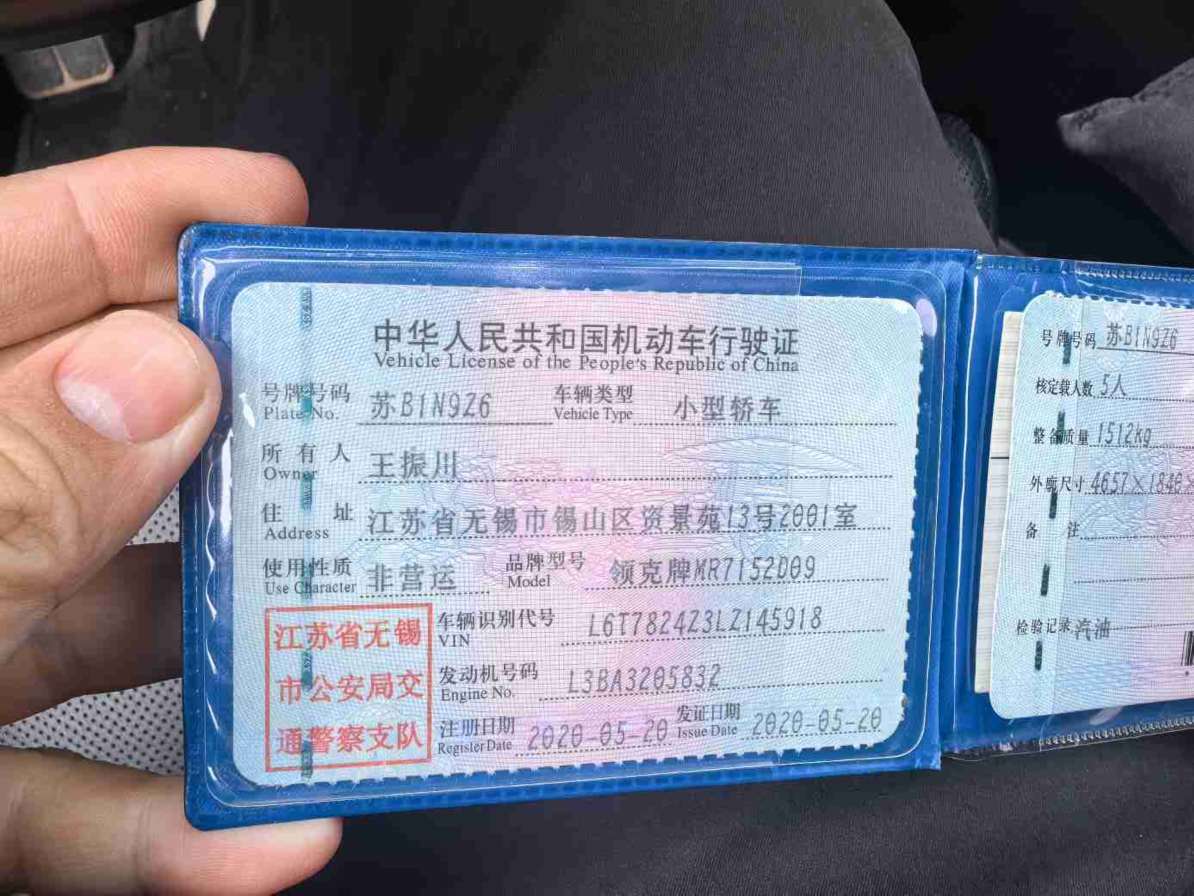 中华人民共和国机动车行驶证
Vehicle License of the People's Republic of China
号牌号码 苏B1N9Z6 车辆类型 小型轿车
Plate No. Vehicle Type
所有人 王振川
Owner
住址 江苏省无锡市锡山区资景苑13号2001室
Address
使用性质 非营运 品牌型号 领克牌MR7152D09
Use Character Model
江苏省无锡
市公安局交
通警察支队
车辆识别代号 L6T7824Z3LZ145918
VIN
发动机号码 L3BA3205832
Engine No.
注册日期 2020-05-20 发证日期 2020-05-20
Register Date Issue Date
号牌号码 苏B1N9Z6
核定载人数 5人
整备质量 1512kg
外廓尺寸 4657×1840×
备注
检验记录 汽油